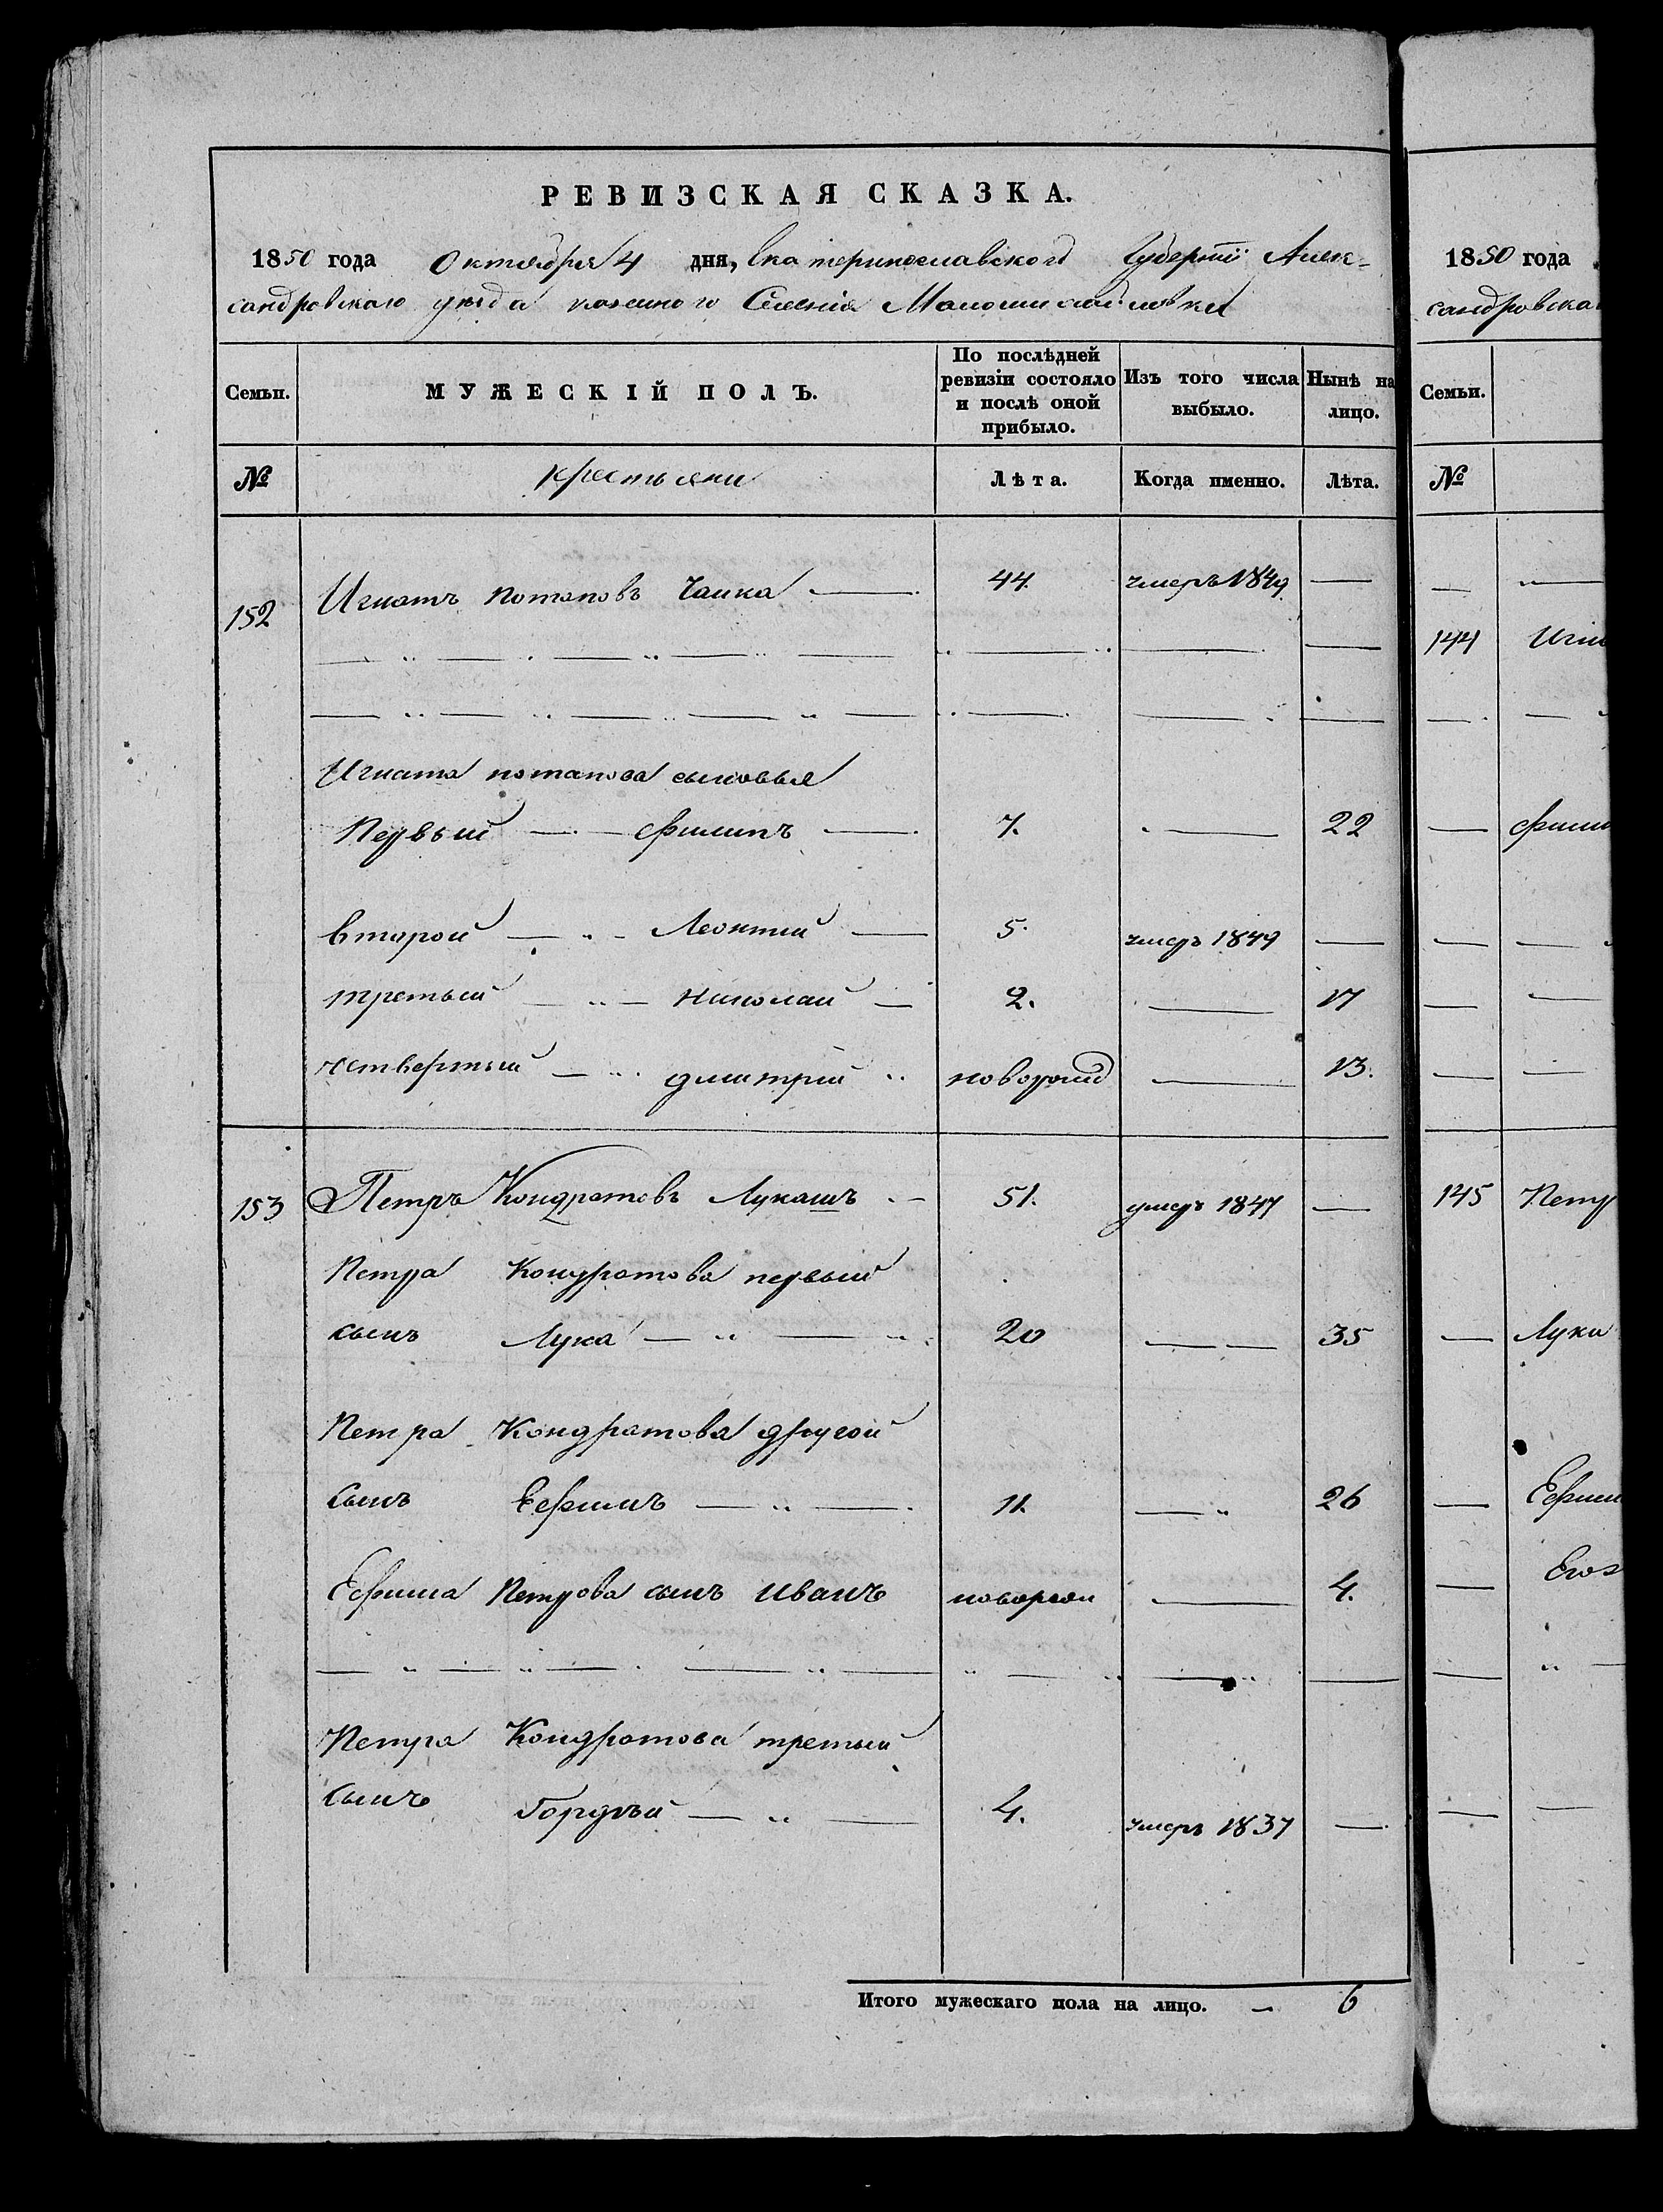 РЕВИЗСКАЯ СКАЗКА.
1850 года Октября 4 дня, Екатеринославского Губернїи Алек-
сандровскаго уезда казенного Селенія Маломихайловки
Семьи.
МУЖЕСКІЙ ПОЛЪ.
По послѣдней ревизіи состояло и послѣ оной прибыло.
Изъ того числа выбыло.
Нынѣ на лицо.
№
крестьяни
Лѣта.
Когда именно.
Лѣта.
152 Игнатъ Потаповъ Чайка — 44. умеръ 1849 —
Игната потапова сыновья
Первый — Филипъ — 7. — 22
второй — Леонтий — 5. умеръ 1849 —
третьий — Николай — 2. — 17
четвертый — дмитрий новорожд — 13.
153 Петръ Кондратовъ Лукашъ — 51. умеръ 1847 —
Петра Кондратова первый
сынъ Лука — 20 — 35
Петра Кондратова другой
сынъ Ефимъ — 11. — 26
Ефима Петрова сынъ Иванъ новорож — 4.
Петра Кондратова третьий
сынъ Гордѣй — 4. умеръ 1837 —
Итого мужескаго пола на лицо. — 6
1850 года
сандровска
Семьи.
№
144
145 Петр
Луки